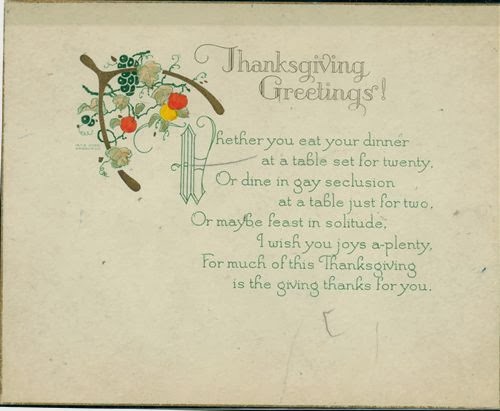 Thanksgiving
Greetings!
Whether you eat your dinner
at a table set for twenty,
Or dine in gay seclusion
at a table just for two,
Or maybe feast in solitude,
I wish you joys a-plenty,
For much of this Thanksgiving
is the giving thanks for you.